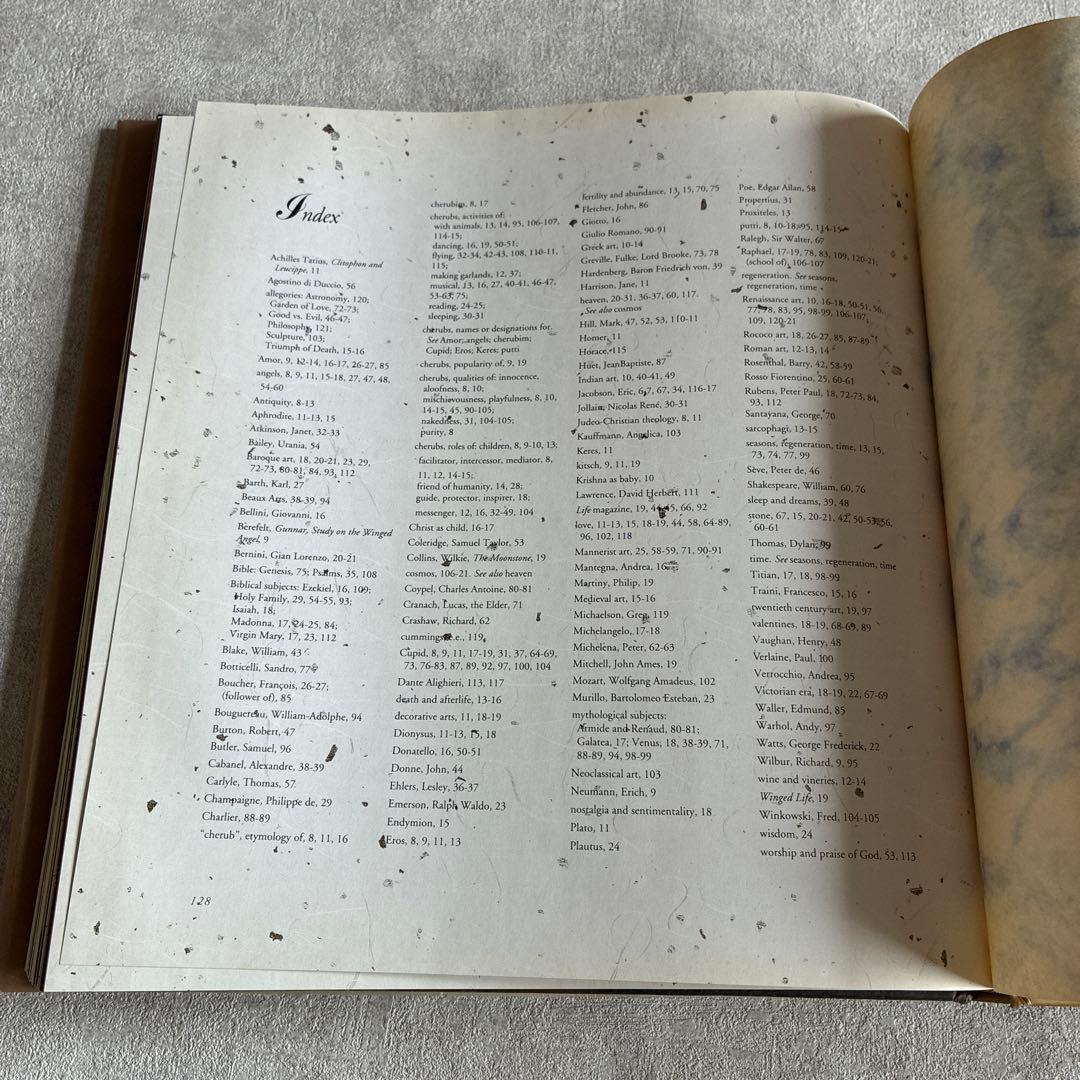 Index
Achilles Tatius, Clitophon and
Leucippe, 11
Agostino di Duccio, 56
allegories: Astronomy, 120;
Garden of Love, 72-73;
Good vs. Evil, 46-47;
Philosophy, 121;
Sculpture, 103;
Triumph of Death, 15-16
Amor, 9, 12-14, 16-17, 26-27, 85
angels, 8, 9, 11, 15-18, 27, 47, 48,
54-60
Antiquity, 8-13
Aphrodite, 11-13, 15
Atkinson, Janet, 32-33
Bailey, Urania, 54
Baroque art, 18, 20-21, 23, 29,
72-73, 80-81, 84, 93, 112
Barth, Karl, 27
Beaux Arts, 38-39, 94
Bellini, Giovanni, 16
Berefelt, Gunnar, Study on the Winged
Angel, 9
Bernini, Gian Lorenzo, 20-21
Bible: Genesis, 75; Psalms, 35, 108
Biblical subjects: Ezekiel, 16, 109;
Holy Family, 29, 54-55, 93;
Isaiah, 18;
Madonna, 17, 24-25, 84;
Virgin Mary, 17, 23, 112
Blake, William, 43
Botticelli, Sandro, 77
Boucher, François, 26-27;
(follower of), 85
Bouguereau, William-Adolphe, 94
Burton, Robert, 47
Butler, Samuel, 96
Cabanel, Alexandre, 38-39
Carlyle, Thomas, 57
Champaigne, Philippe de, 29
Charlier, 88-89
"cherub", etymology of, 8, 11, 16
128
cherubim, 8, 17
cherubs, activities of:
with animals, 13, 14, 95, 106-107,
114-15;
dancing, 16, 19, 50-51;
flying, 32-34, 42-43, 108, 110-11,
115;
making garlands, 12, 37;
musical, 13, 16, 27, 40-41, 46-47,
53-63, 75;
reading, 24-25;
sleeping, 30-31
cherubs, names or designations for.
See Amor; angels; cherubim;
Cupid; Eros; Keres; putti
cherubs, popularity of, 9, 19
cherubs, qualities of: innocence,
aloofness, 8, 10;
mischievousness, playfulness, 8, 10,
14-15, 45, 90-105;
nakedness, 31, 104-105;
purity, 8
cherubs, roles of: children, 8, 9-10, 13;
facilitator, intercessor, mediator, 8,
11, 12, 14-15;
friend of humanity, 14, 28;
guide, protector, inspirer, 18;
messenger, 12, 16, 32-49, 104
Christ as child, 16-17
Coleridge, Samuel Taylor, 53
Collins, Wilkie, The Moonstone, 19
cosmos, 106-21. See also heaven
Coypel, Charles Antoine, 80-81
Cranach, Lucas, the Elder, 71
Crashaw, Richard, 62
cummings, e.e., 119
Cupid, 8, 9, 11, 17-19, 31, 37, 64-69,
73, 76-83, 87, 89, 92, 97, 100, 104
Dante Alighieri, 113, 117
death and afterlife, 13-16
decorative arts, 11, 18-19
Dionysus, 11-13, 15, 18
Donatello, 16, 50-51
Donne, John, 44
Ehlers, Lesley, 36-37
Emerson, Ralph Waldo, 23
Endymion, 15
Eros, 8, 9, 11, 13
fertility and abundance, 13, 15, 70, 75
Fletcher, John, 86
Giotto, 16
Giulio Romano, 90-91
Greek art, 10-14
Greville, Fulke, Lord Brooke, 73, 78
Hardenberg, Baron Friedrich von, 39
Harrison, Jane, 11
heaven, 20-31, 36-37, 60, 117.
See also cosmos
Hill, Mark, 47, 52, 53, 110-11
Homer, 11
Horace, 115
Huet, JeanBaptiste, 87
Indian art, 10, 40-41, 49
Jacobson, Eric, 67, 67, 34, 116-17
Jollain, Nicolas René, 30-31
Judeo-Christian theology, 8, 11
Kauffmann, Angelica, 103
Keres, 11
kitsch, 9, 11, 19
Krishna as baby, 10
Lawrence, David Herbert, 111
Life magazine, 19, 44-45, 66, 92
love, 11-13, 15, 18-19, 44, 58, 64-89,
96, 102, 118
Mannerist art, 25, 58-59, 71, 90-91
Mantegna, Andrea, 16
Martiny, Philip, 19
Medieval art, 15-16
Michaelson, Greg, 119
Michelangelo, 17-18
Michelena, Peter, 62-63
Mitchell, John Ames, 19
Mozart, Wolfgang Amadeus, 102
Murillo, Bartolomeo Esteban, 23
mythological subjects:
Armide and Renaud, 80-81;
Galatea, 17; Venus, 18, 38-39, 71,
88-89, 94, 98-99
Neoclassical art, 103
Neumann, Erich, 9
nostalgia and sentimentality, 18
Plato, 11
Plautus, 24
Poe, Edgar Allan, 58
Propertius, 31
Proxiteles, 13
putti, 8, 10-18, 95, 114-15
Ralegh, Sir Walter, 67
Raphael, 17-19, 78, 83, 109, 120-21;
(school of), 106-107
regeneration. See seasons,
regeneration, time
Renaissance art, 10, 16-18, 50-51, 56,
77, 78, 83, 95, 98-99, 106-107,
109, 120-21
Rococo art, 18, 26-27, 85, 87-89
Roman art, 12-13, 14
Rosenthal, Barry, 42, 58-59
Rosso Fiorentino, 25, 60-61
Rubens, Peter Paul, 18, 72-73, 84,
93, 112
Santayana, George, 70
sarcophagi, 13-15
seasons, regeneration, time, 13, 15,
73, 74, 77, 99
Sève, Peter de, 46
Shakespeare, William, 60, 76
sleep and dreams, 39, 48
stone, 67, 15, 20-21, 42, 50-53, 56,
60-61
Thomas, Dylan, 99
time. See seasons, regeneration, time
Titian, 17, 18, 98-99
Traini, Francesco, 15, 16
twentieth century art, 19, 97
valentines, 18-19, 68-69, 89
Vaughan, Henry, 48
Verlaine, Paul, 100
Verrocchio, Andrea, 95
Victorian era, 18-19, 22, 67-69
Waller, Edmund, 85
Warhol, Andy, 97
Watts, George Frederick, 22
Wilbur, Richard, 9, 95
wine and vineries, 12-14
Winged Life, 19
Winkowski, Fred, 104-105
wisdom, 24
worship and praise of God, 53, 113